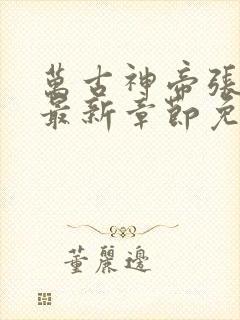 萬古神帝張
最新章節免
董麗邊